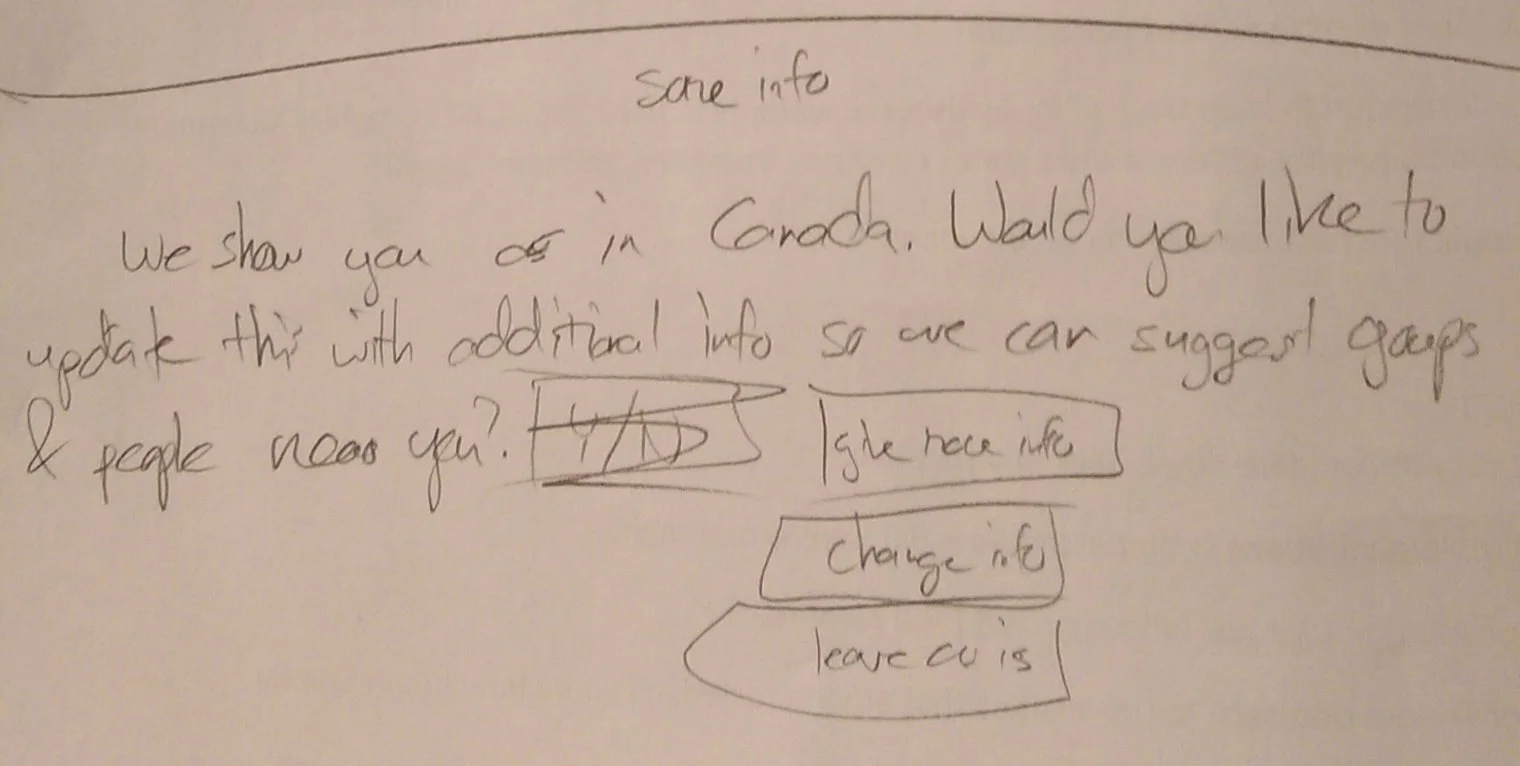 some info
We show you as in Canada. Would you like to
update this with additional info so we can suggest groups
& people near you? Y/N give more info
change info
leave as is